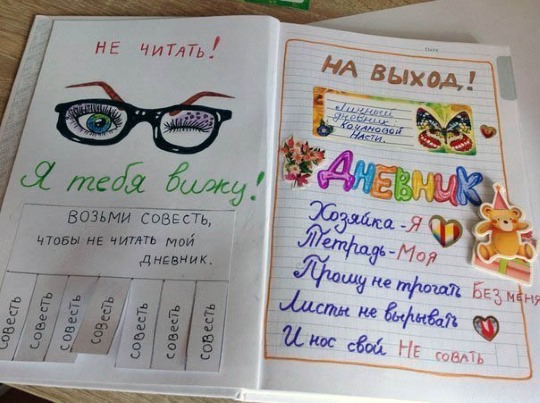 НЕ ЧИТАТЬ!
Я тебя вижу!
ВОЗЬМИ СОВЕСТЬ,
ЧТОБЫ НЕ ЧИТАТЬ МОЙ
ДНЕВНИК.
СОВЕСТЬ
СОВЕСТЬ
СОВЕСТЬ
СОВЕСТЬ
СОВЕСТЬ
СОВЕСТЬ
СОВЕСТЬ
Date
НА ВЫХОД!
Личный
дневник
КОНАНОВОЙ
НАСТИ.
ДНЕВНИК
Хозяйка-Я
Тетрадь-Моя
Прошу не трогать Без меня
Листы не вырывать
И нос свой НЕ СОВАТЬ